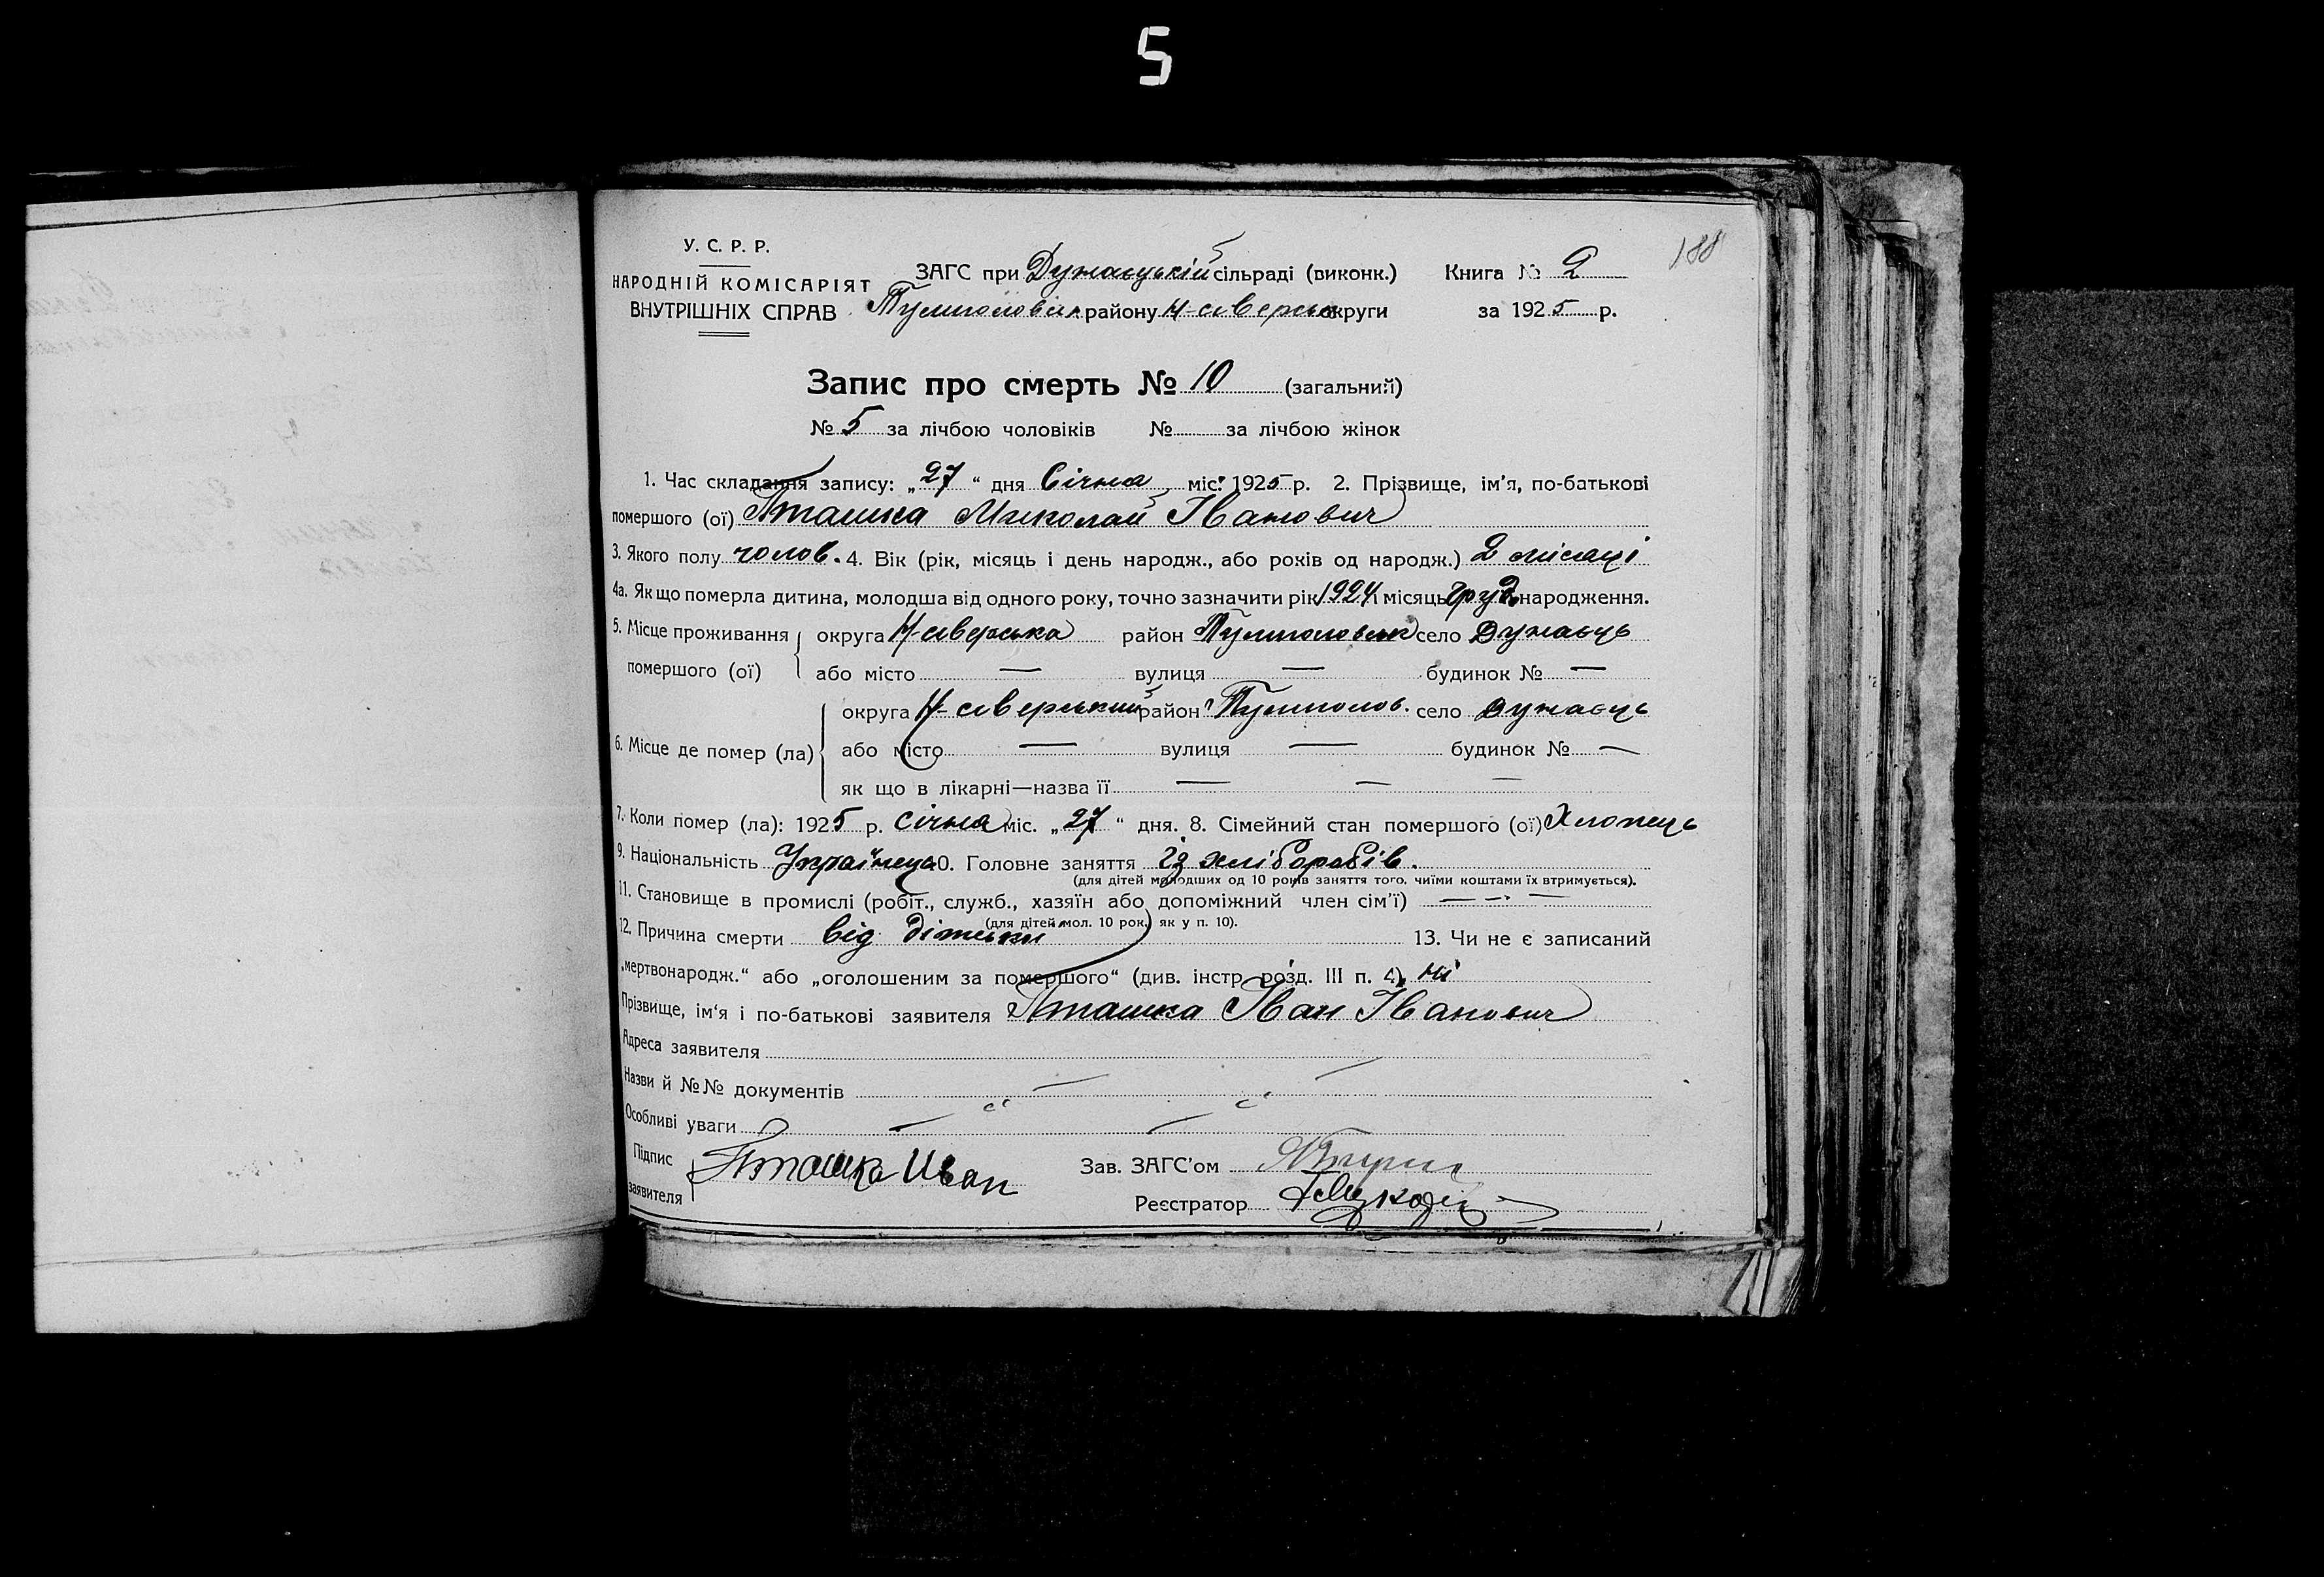 5
188
У. С. Р. Р.
НАРОДНІЙ КОМІСАРІЯТ
ВНУТРІШНІХ СПРАВ
ЗАГС при Дунаецькій сільраді (виконк.) Книга № 2
району Н-сіверськ округи за 1925 р.
Запис про смерть № 10 (загальний)
№ 5 за лічбою чоловіків № за лічбою жінок
1. Час складання запису: „27“ дня Січня міс. 1925 р. 2. Прізвище, ім'я, по-батькові
помершого (ої) Пташка Миколай Іванович
3. Якого полу чолов. 4. Вік (рік, місяць і день народж., або років од народж.) 2 місяці
4а. Як що померла дитина, молодша від одного року, точно зазначити рік 1924 і місяць груд. народження.
5. Місце проживання помершого (ої) округа Н-сіверська район село Дунаєць
або місто — вулиця — будинок № —
6. Місце де помер (ла) округа Н-сіверський район село Дунаєць
або місто — вулиця — будинок № —
як що в лікарні—назва її — — —
7. Коли помер (ла): 1925 р. Січня міс. „27“ дня. 8. Сімейний стан помершого (ої) Хлопець
9. Національність Українець 10. Головне заняття із хліборобів.
(для дітей молодших од 10 років заняття того, чиїми коштами їх втримується).
11. Становище в промислі (робіт., служб., хазяїн або допоміжний член сім'ї) — — —
(для дітей мол. 10 рок. як у п. 10).
12. Причина смерти від 13. Чи не є записаний
„мертвонародж.“ або „оголошеним за помершого“ (див. інстр. розд. III п. 4) ні
Прізвище, ім'я і по-батькові заявителя Пташка Іван Іванович
Адреса заявителя
Назви й №№ документів
Особливі уваги
Підпис заявителя Пташка Иван Зав. ЗАГС'ом
Реєстратор